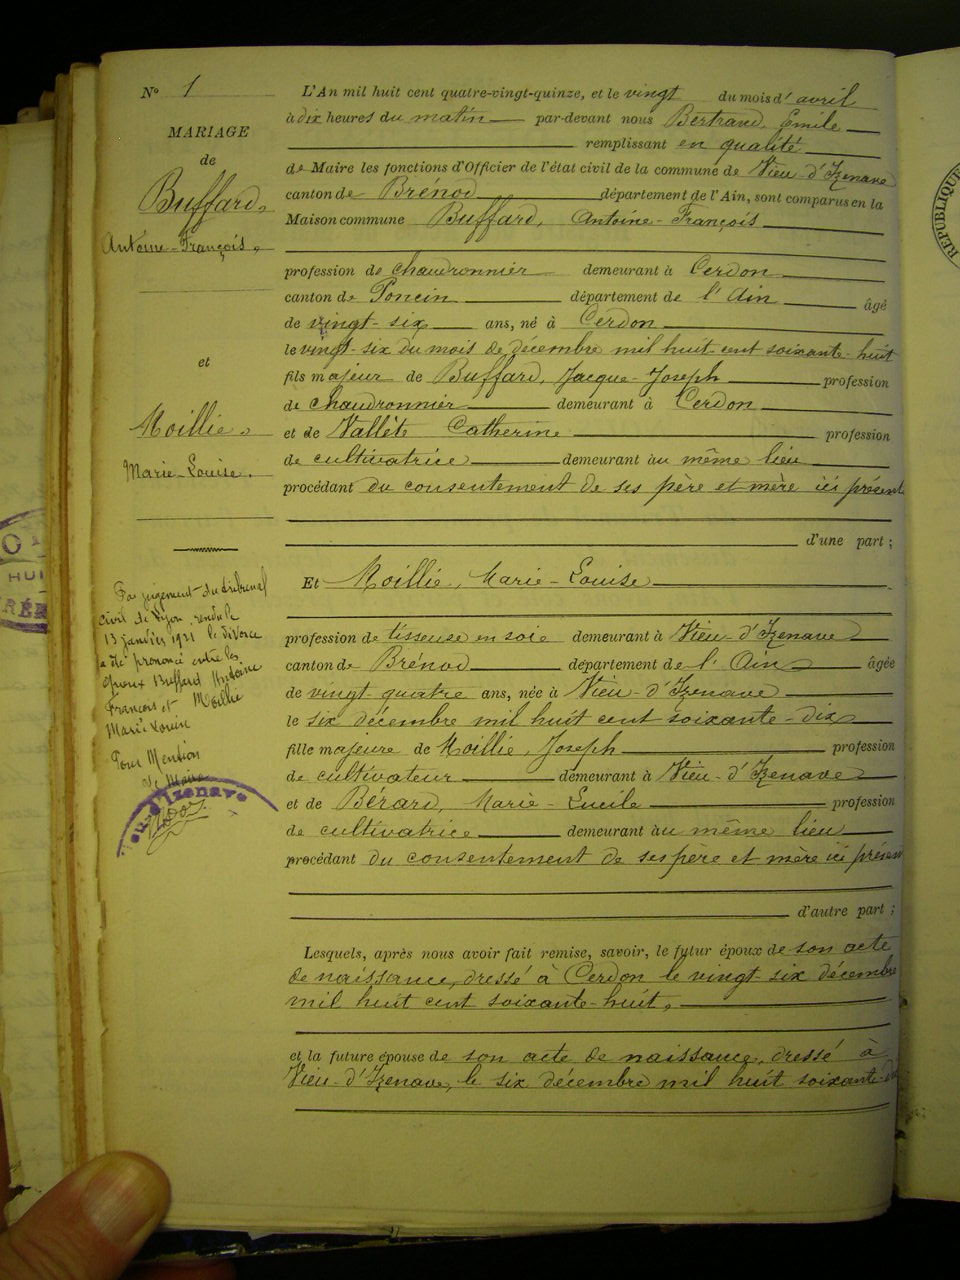 N° 1
MARIAGE
de
Buffard,
Antoine-François,
et
Moillie,
Marie-Louise.
Par jugement du tribunal
civil de Lyon rendu le
13 janvier 1921 le divorce
a été prononcé entre les
époux Buffard Antoine
François et Moillie
Marie Louise
Pour Mention
Le Maire
d'Izenave
L'An mil huit cent quatre-vingt-quinze, et le vingt du mois d'avril
à dix heures du matin par-devant nous Bertrand, Emile
remplissant en qualité
de Maire les fonctions d'Officier de l'état civil de la commune de Vieu-d'Izenave
canton de Brénod département de l'Ain, sont comparus en la
Maison commune Buffard, Antoine-François
profession de chaudronnier demeurant à Cerdon
canton de Poncin département de l'Ain âgé
de vingt-six ans, né à Cerdon
le vingt-six du mois de décembre mil huit-cent soixante-huit
fils majeur de Buffard, Jacque-Joseph profession
de chaudronnier demeurant à Cerdon
et de Vallète Catherine profession
de cultivatrice demeurant au même lieu
procédant du consentement de ses père et mère ici présent
d'une part ;
Et Moillie, Marie-Louise
profession de tisseuse en soie demeurant à Vieu-d'Izenave
canton de Brénod département de l'Ain âgée
de vingt-quatre ans, née à Vieu-d'Izenave
le six décembre mil huit cent soixante-dix
fille majeure de Moillie, Joseph profession
de cultivateur demeurant à Vieu-d'Izenave
et de Bérard, Marie-Lucile profession
de cultivatrice demeurant au même lieu
procédant du consentement de ses père et mère ici présen
d'autre part ;
Lesquels, après nous avoir fait remise, savoir, le futur époux de son acte
de naissance, dressé à Cerdon le vingt-six décembre
mil huit cent soixante-huit,
et la future épouse de son acte de naissance, dressé à
Vieu-d'Izenave, le six décembre mil huit soixante-dix
RÉPUBLIQUE